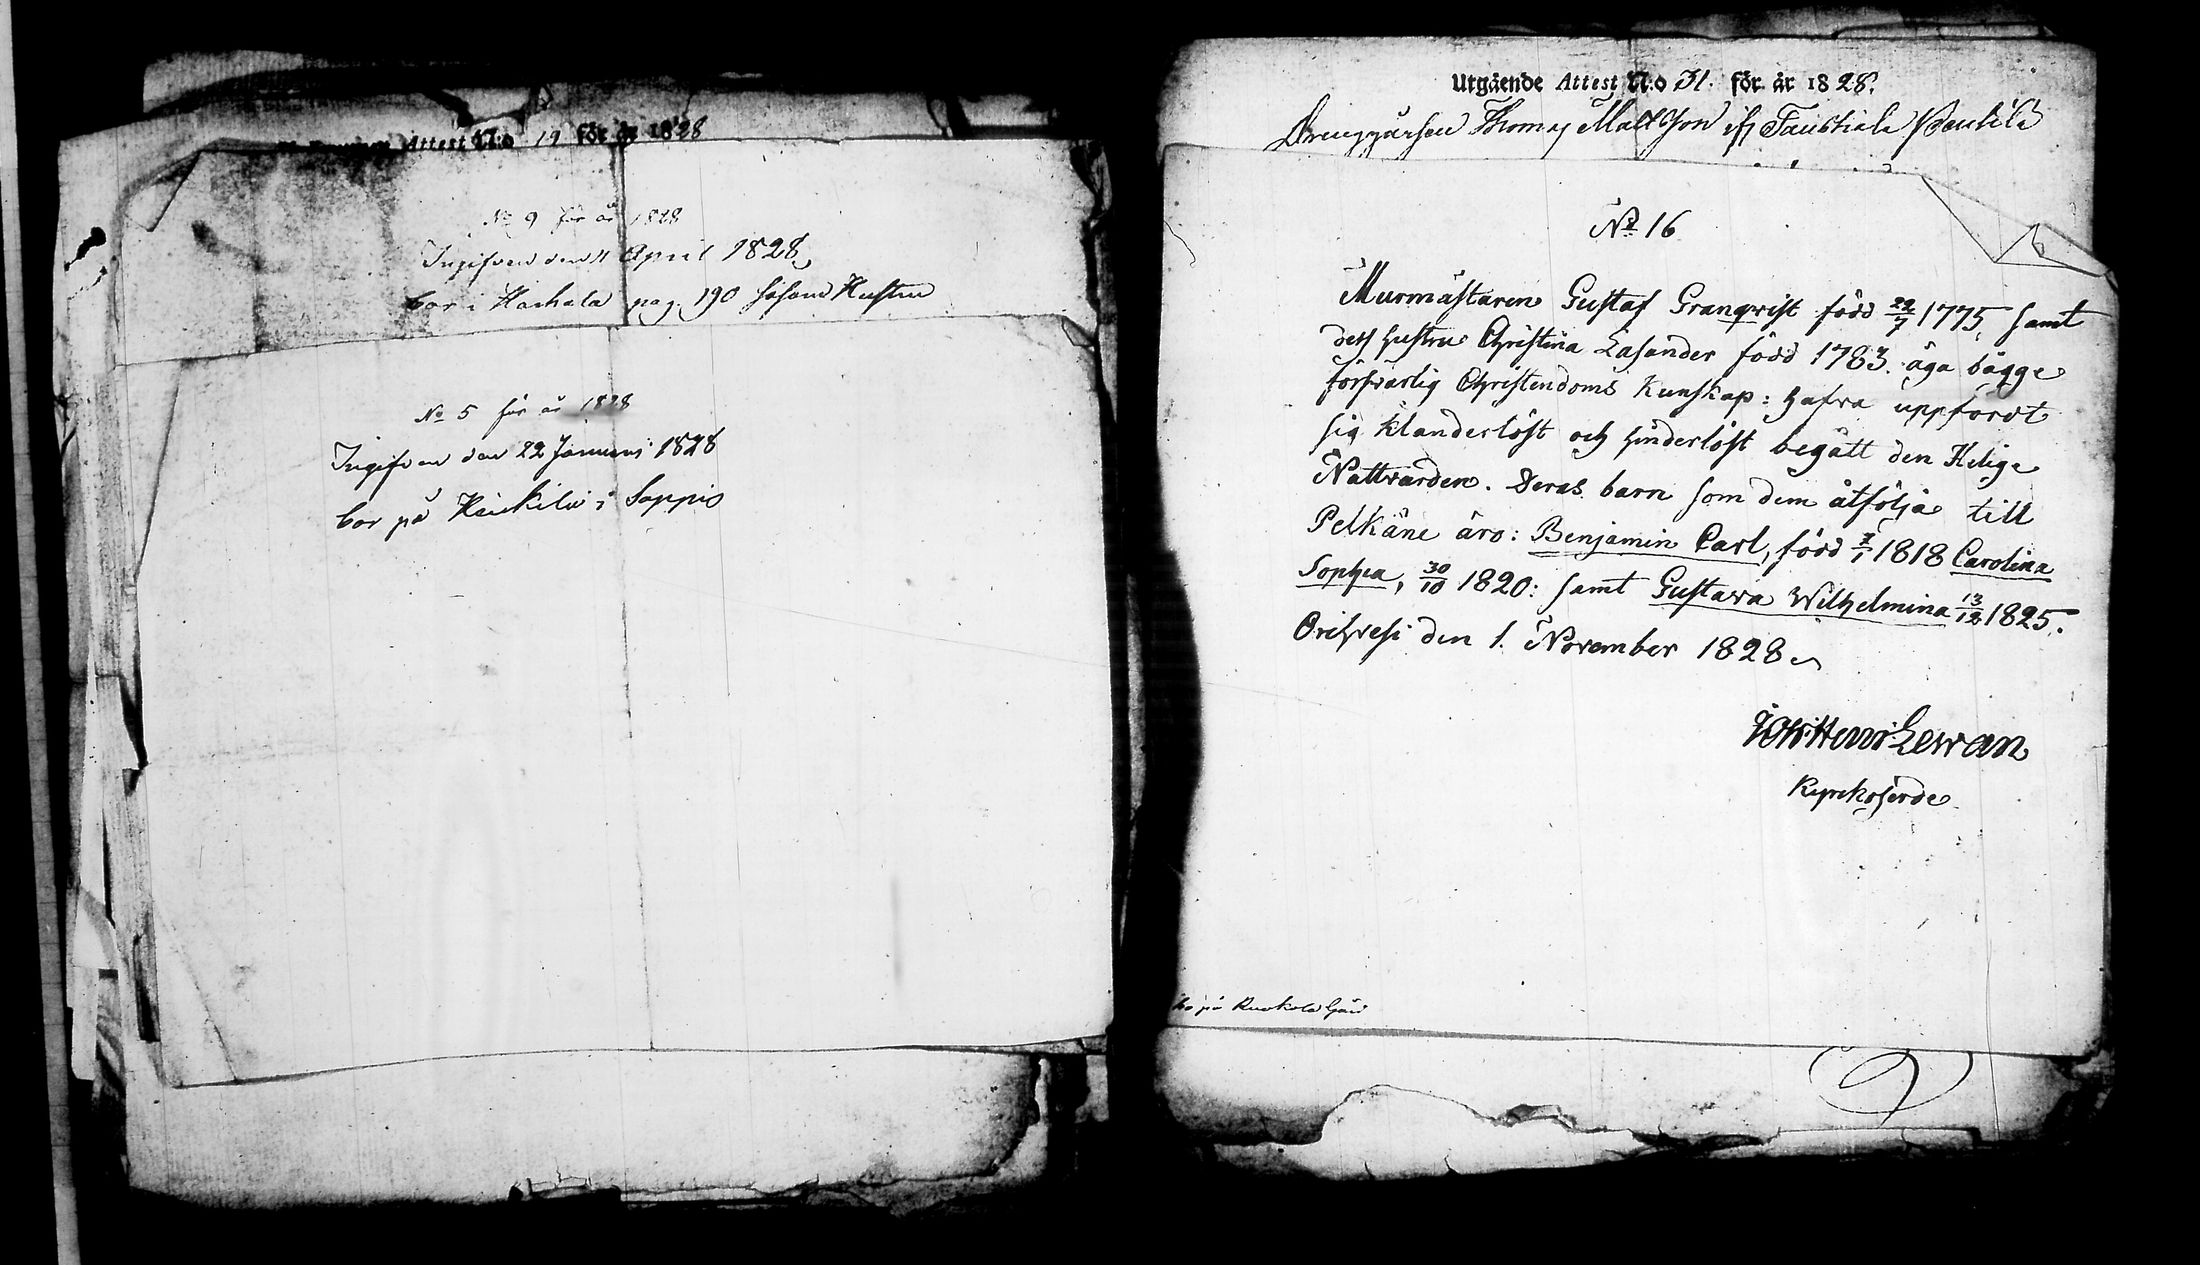 Attest N:o 19 för år 1828
No 9 för år 1828
Ingifven den 11 April 1828
bor i Haskala pag. 190 såsom Hustru
No 5 för år 1828
Ingifven den 22 Januari 1828
bor på i Sappis
Utgående Attest N:o 31. för år 1828.
Drenggårssen Thomas Mattsson ifr
No 16
Murmästaren Gustaf Granqvist född 22/7 1775, samt
dess hustru Christina Lasander född 1783. äga bägge
försvarlig Christendoms Kunskap: hafva uppfördt
sig klanderlöst och hinderlöst begått den Helige
Nattvarden. Deras barn som dem åtfölja till
Pelkäne äro: Benjamin Carl, född 7/1 1818 Carolina
Sophia, 30/10 1820: samt Gustava Wilhelmina 13/12 1825.
Orihvesi den 1. November 1828
Henr: Lewan
Kyrkoherde
bo på Ruokola Gård